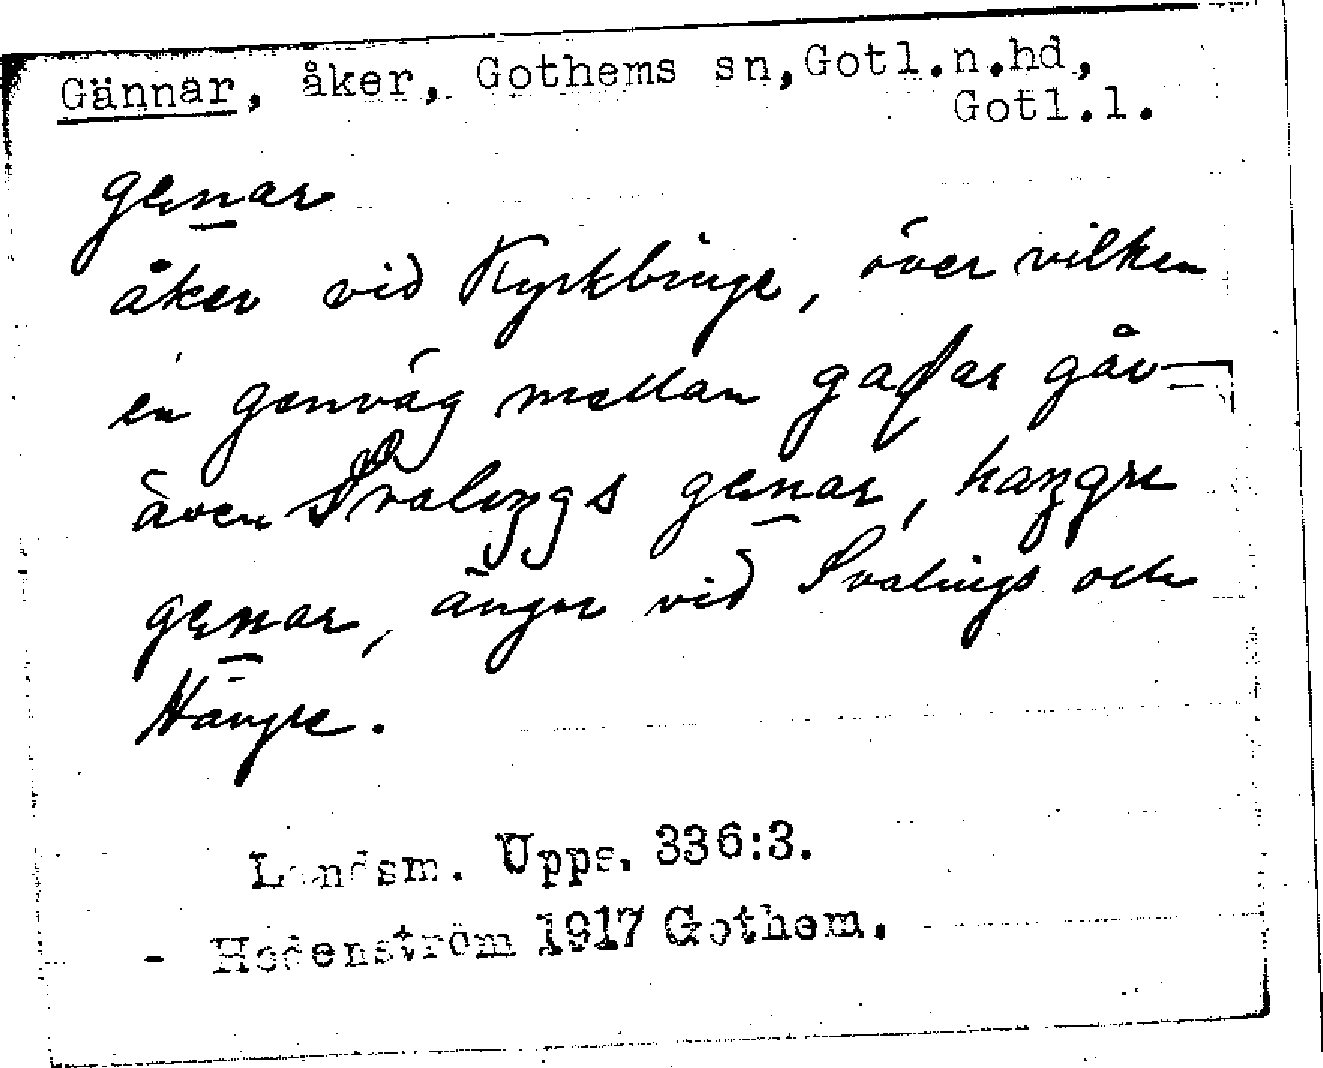 Gännar, åker, Gothems sn, Gotl.n.hd,
Gotl.l.
genar
åker vid Kyrkbinge, över vilken
en genväg mellan gaſar går
även Svalings genar, hangre
genar, ängar vid Svalings och
Hängre.
Landsm. Upps. 336:3.
- Hedenström 1917 Gothem.